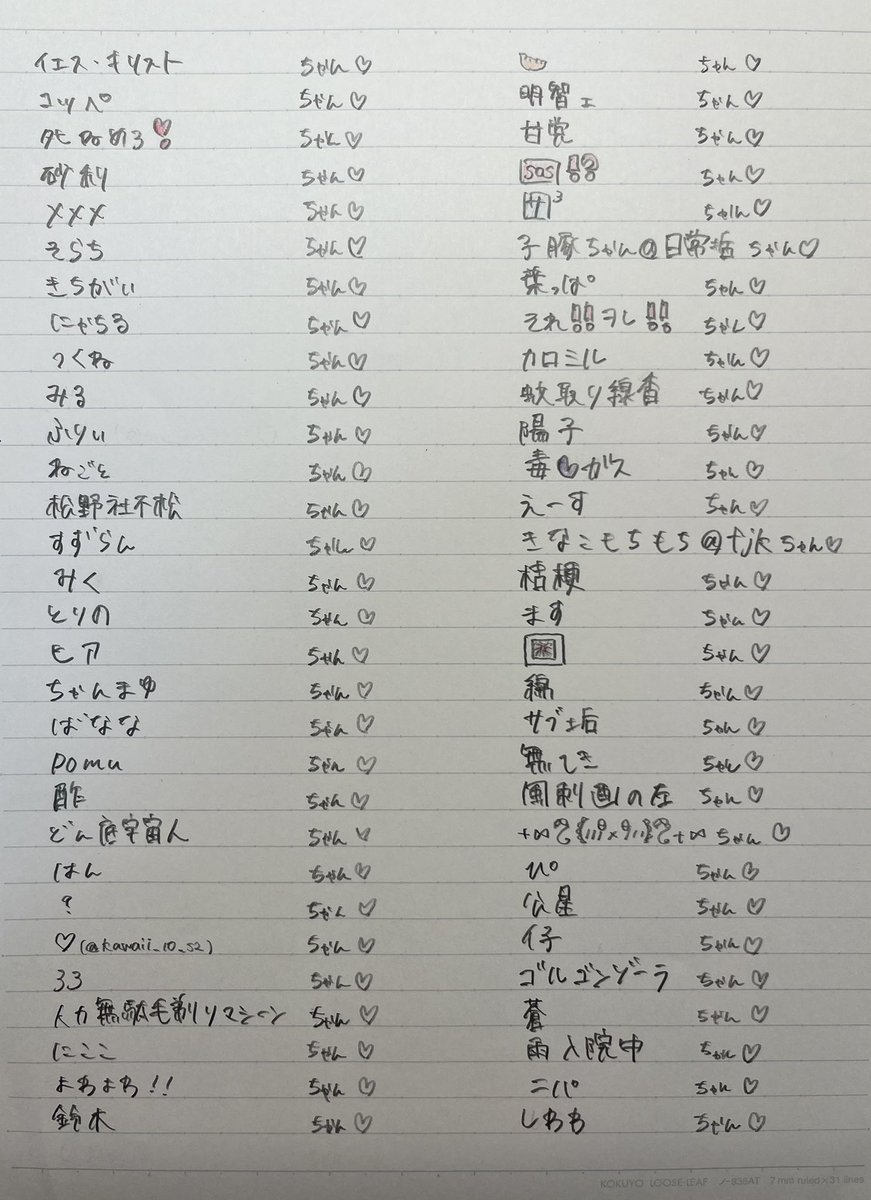 イエス・キリスト ちゃん♡
コッペ ちゃん♡
ちゃん♡
砂利 ちゃん♡
××× ちゃん♡
そらち ちゃん♡
きちがい ちゃん♡
にゃちる ちゃん♡
つくね ちゃん♡
みる ちゃん♡
ふりぃ ちゃん♡
ねごと ちゃん♡
松野社不松 ちゃん♡
すずらん ちゃん♡
みく ちゃん♡
とりの ちゃん♡
モア ちゃん♡
ちゃんまゆ ちゃん♡
ばなな ちゃん♡
pomu ちゃん♡
酢 ちゃん♡
どん底宇宙人 ちゃん♡
はん ちゃん♡
? ちゃん♡
♡(@kawaii_10_52) ちゃん♡
33 ちゃん♡
人力無駄毛剃りマシーン ちゃん♡
にここ ちゃん♡
よわよわ!! ちゃん♡
鈴木 ちゃん♡
ちゃん♡
明智ェ ちゃん♡
甘党 ちゃん♡
SOS ちゃん♡
サ³ ちゃん♡
子豚ちゃん@日常垢 ちゃん♡
葉っぱ ちゃん♡
それ‼ヲレ‼ ちゃん♡
カロミル ちゃん♡
蚊取り線香 ちゃん♡
陽子 ちゃん♡
毒♥ガス ちゃん♡
えーす ちゃん♡
きなこもちもち@fjk ちゃん♡
桔梗 ちゃん♡
ます ちゃん♡
ちゃん♡
綿 ちゃん♡
サブ垢 ちゃん♡
無てき ちゃん♡
風刺画の左 ちゃん♡
ちゃん♡
ぴ ちゃん♡
公星 ちゃん♡
イ子 ちゃん♡
ゴルゴンゾーラ ちゃん♡
蒼 ちゃん♡
雨入院中 ちゃん♡
ニパ ちゃん♡
しわわ ちゃん♡
KOKUYO LOOSE-LEAF ノ-836AT 7mm ruled×31 lines